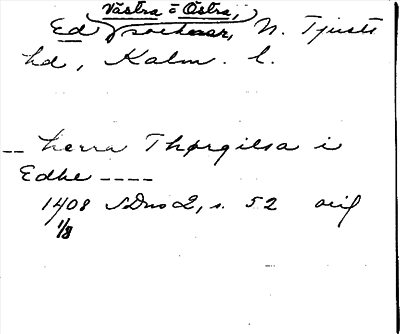 Västra o Östra,
Ed socknar, N. Tjusts
hd, Kalm. l.
-- herra Thørgilsa i
Edhe ----
1408 SDns 2, s. 52 orig
1/8